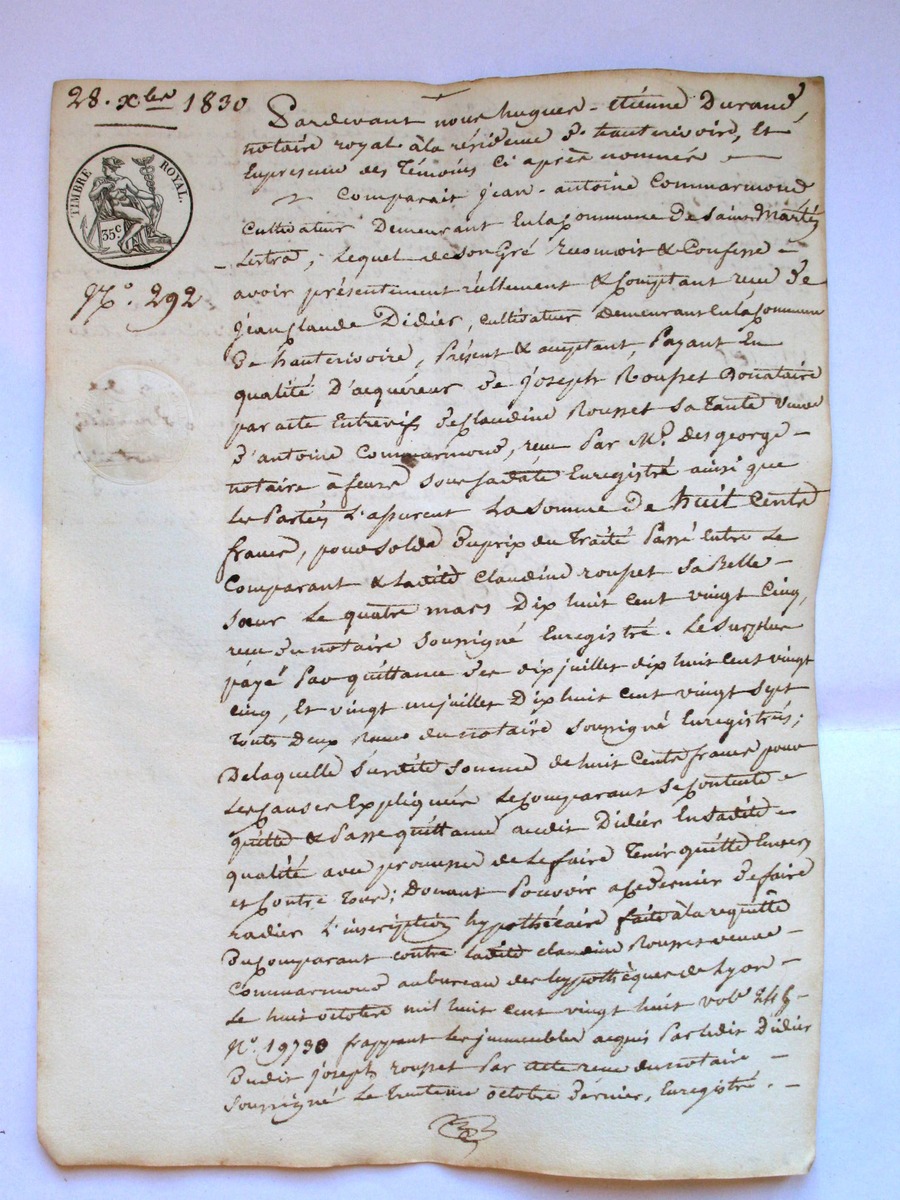 28. Xbre 1830
TIMBRE ROYAL.
35c
No. 292
Pardevant nous hugues-etiénne Durand
notaire royal à la résidence d'hauterivoire, Et
Enprésence des Témoins Ci après nommés
Comparait Jean-antoine Commarmond
Cultivateur Demeurant Enla Commune De Saint Martin
Lestra, Lequel deson Gré reconnoit & Confesse
avoir présentement réellement & Comptant recu De
Jean Claude Didier, Cultivateur Demeurant Enla Commune
De hauterivoire, Présent & acceptant, Payant En
qualité D'acquéreur De joseph Rousset Donataire
par acte Entrevifs De Claudine Rousset Sa Tante veuve
D'antoine Commarmond, recu Par Me. Desgeorge
notaire à feurs Sous Sa date Enregistré ainsi que
les Parties L'assurent La Somme De huit Cents
francs, pour Solde Du prix du Traité Passé Entre Le
Comparant & Ladite Claudine rousset Sa Belle
Sœur Le quatre mars Dix huit Cent vingt Cinq,
recu Du notaire Soussigné Enregistré. Le Surplus
payé Par quittance des dix juillet dix huit cent vingt
cinq, Et vingt un juillet Dix huit Cent vingt Sept
Toutes Deux Recues du notaire Soussigné Enregistrés;
De laquelle Susdite Somme de huit Cents francs pour
Les Causes Expliquées Le Comparant Se Contente
quitte & Passe quittance audit Didier En Sadite
qualité avec promesse de Le faire Tenir quitte Envers
et Contre Tous; Donnant Pouvoir a Ce dernier De faire
radier L'inscription hypothécaire faite à la requête
Du Comparant contre Ladite claudine Rousset veuve
Commarmond au bureau des hypothèques de Lyon
Le huit octobre mil huit cent vingt huit vole
No. 19730 frappant les immeubles acquis Par ledit Didier
Dudit joseph rousset Par acte recu du notaire
Soussigné Le Trentième octobre Dernier, Enregistré.